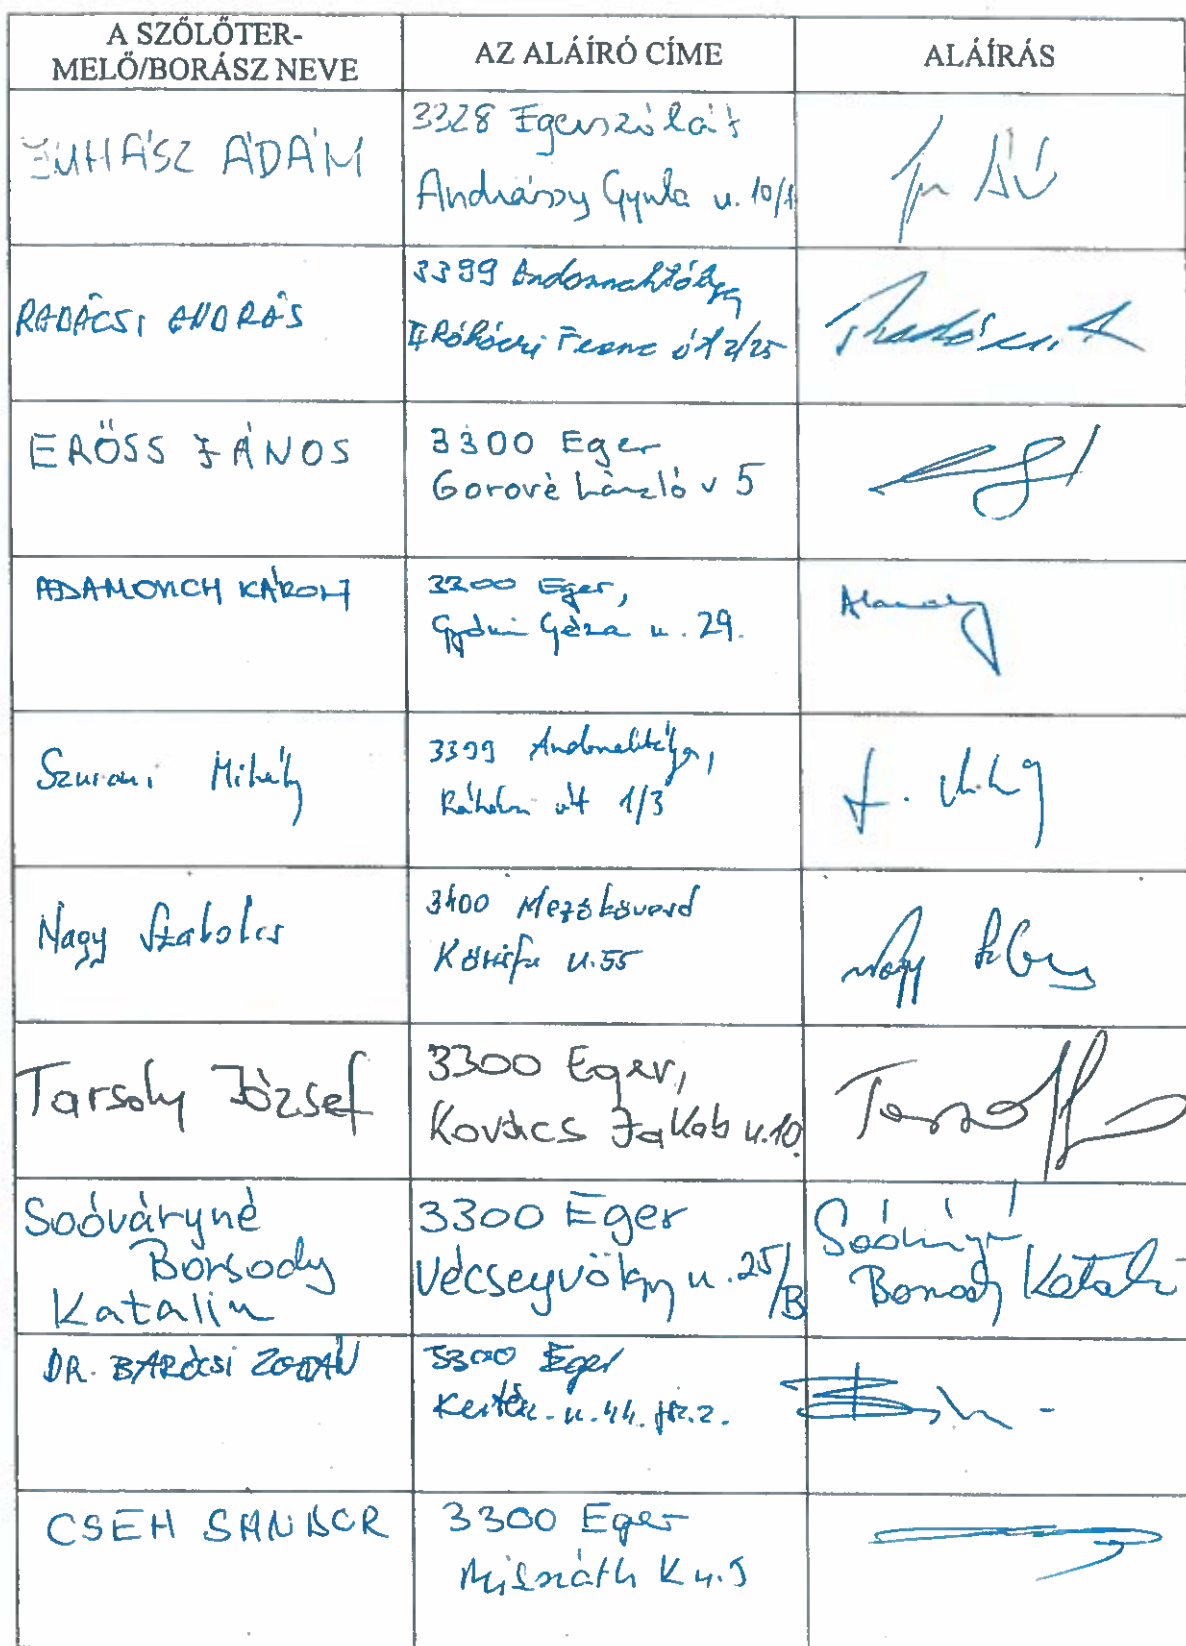 A SZŐLŐTER-
MELŐ/BORÁSZ NEVE
AZ ALÁÍRÓ CÍME
ALÁÍRÁS
JUHÁSZ ÁDÁM
3328 Egerszólát
Andrássy Gyula u. 10/1
RADÁCSI ANDRÁS
3399 Andornaktálya
II Rákóczi Ferenc út 2/25
ERŐSS JÁNOS
3300 Eger
Gorové László u 5
ADAMOVICH KÁROLY
3300 Eger,
Gyóni Géza u. 29.
Szuromi Mihály
3399 Andornaktálya,
Rákóczi út 1/3
Nagy Szabolcs
3400 Mezőkövesd
Kőrisfa u. 55
Nagy
Tarsoly József
3300 Eger,
Kovács Jakab u. 10.
Soóváryné
Borsody
Katalin
3300 Eger
Vécseyvölgy u. 25/B
Soóváryné
Borsody Katalin
DR. BARÓCSI ZOLTÁN
3300 Eger
Kertész u. 44. fsz. 2.
CSEH SÁNDOR
3300 Eger
Mikszáth K u. 5